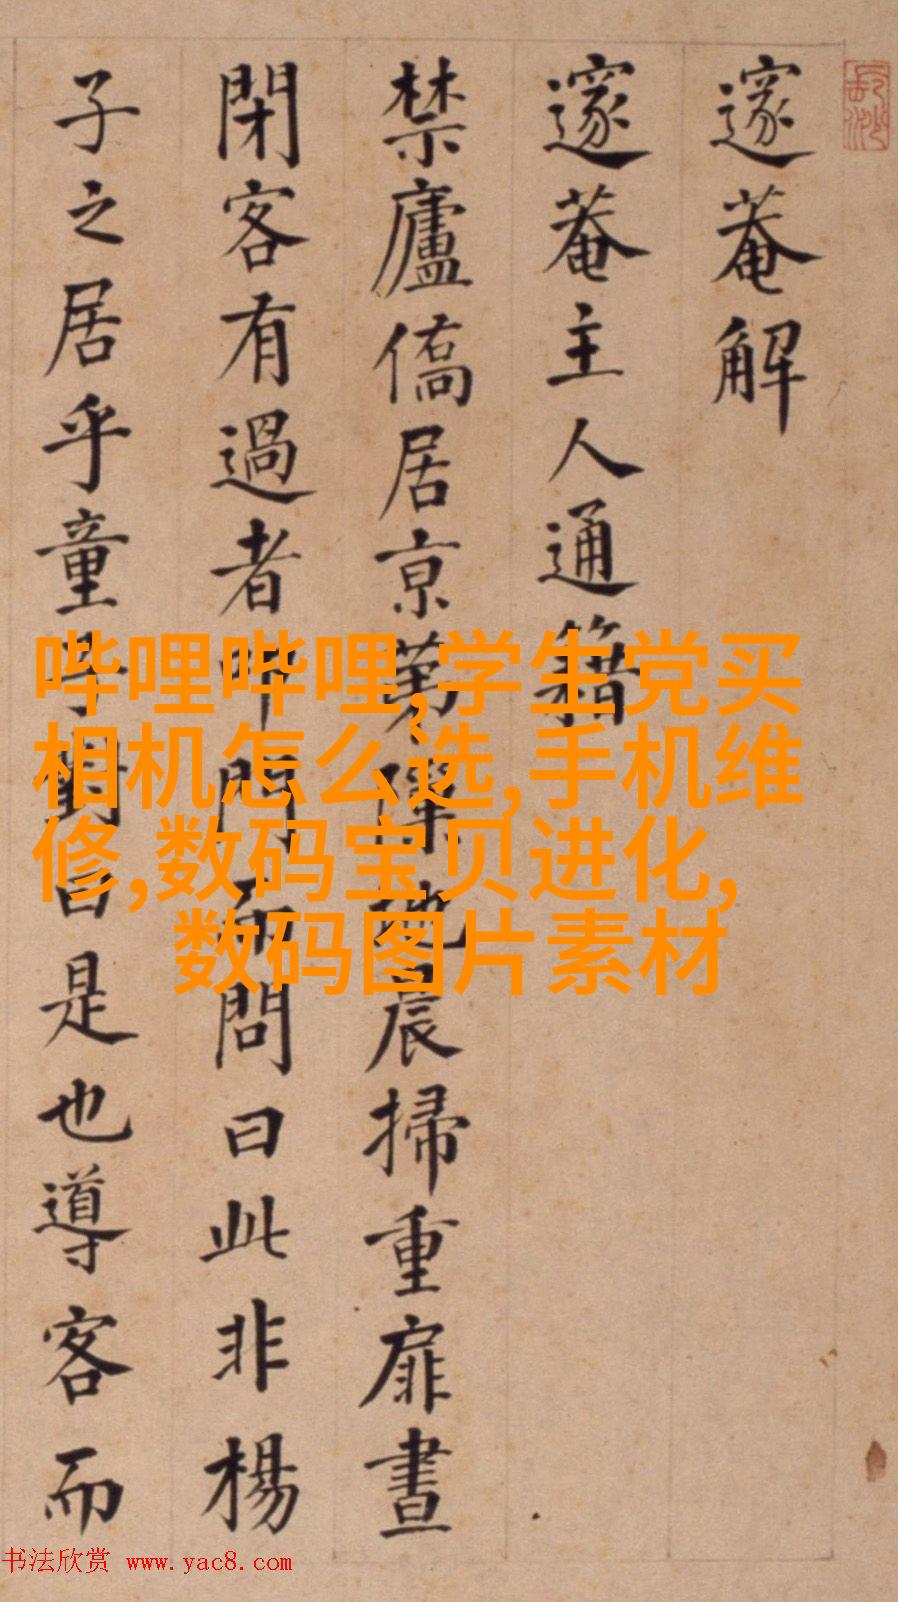 邃菴解
邃菴主人通籍
禁廬僑居京苐隙地晨掃重扉晝
閉客有過者叩門而問曰此非楊
子之居乎童子對曰是也導客而
哔哩哔哩,学生党买
相机怎么选,手机维
修,数码宝贝进化,
数码图片素材
书法欣赏 www.yac8.com